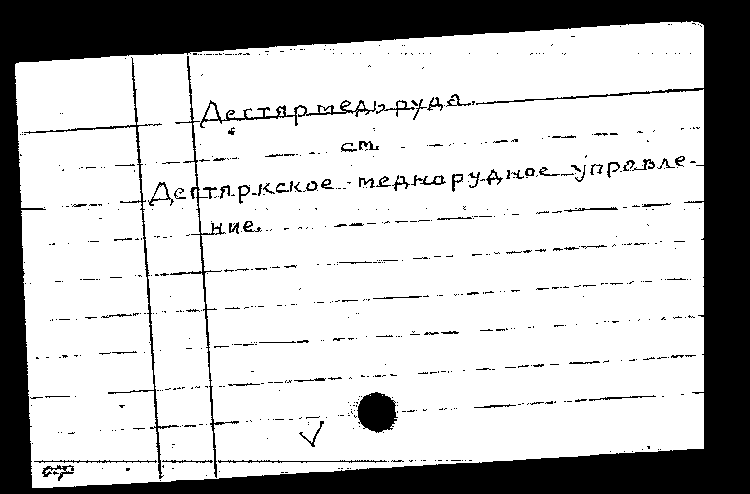 Дегтярмедьруда.
см.
Дегтяркское меднорудное управле-
ние.